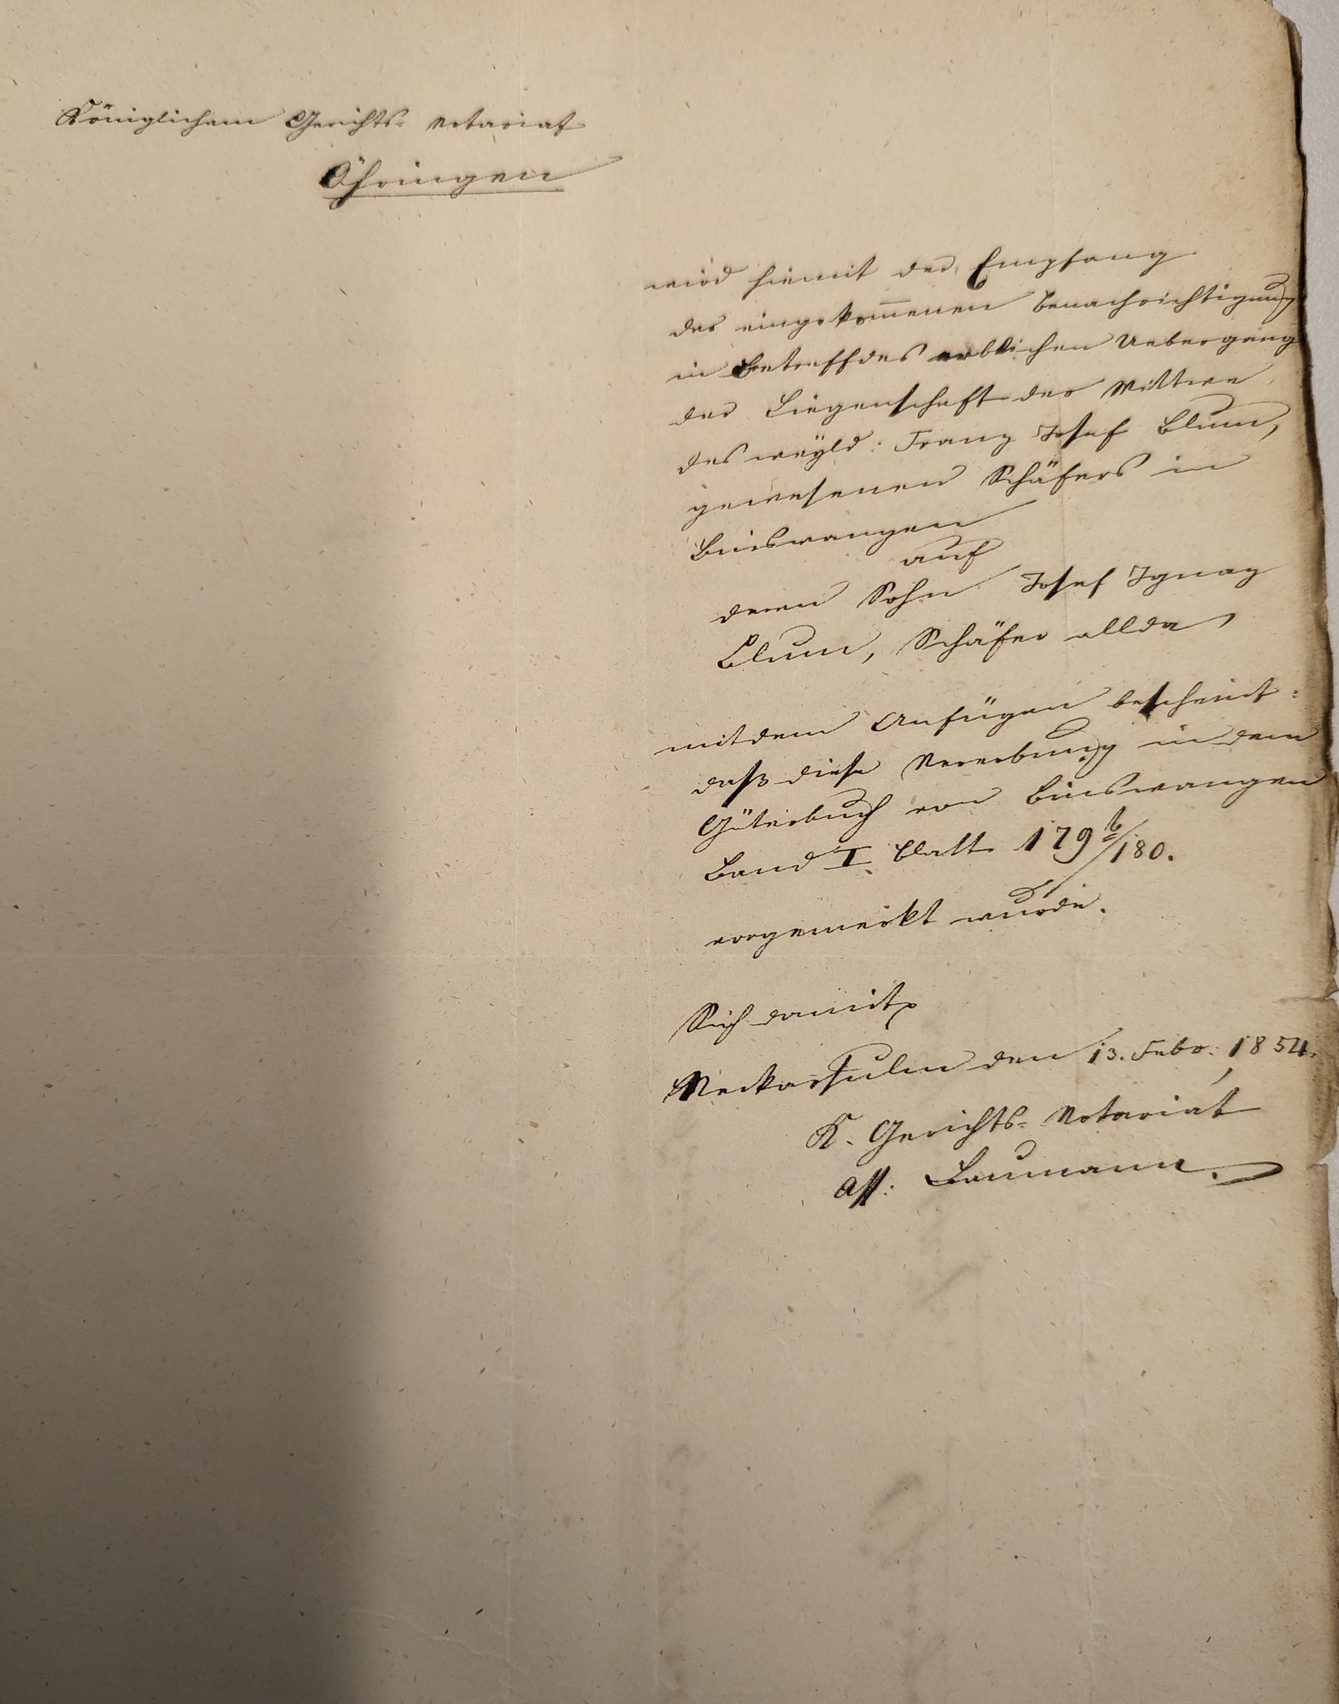 Königlichem Gerichts- Notariat
Öhringen
wird hiemit der Empfang
der eingekom̅enen Benachrichtigung
in Betreff des erblichen Uebergang
der Liegenschaft der Wittwe
des weyld: Franz Josef Blum,
gewesenen Schäfers in
Binswangen
auf
deren Sohn Josef Ignaz
Blum, Schäfer allda
mit dem Anfügen bescheint:
daß diese Vererbung in dem
Güterbuch von Binswangen
Band I. Blatt 179 b/180.
vorgemerkt wurde.
Sich damit
Neckarsulm den 13. Febr: 1854.
K. Gerichts- Notariat
Ass: Baumann.